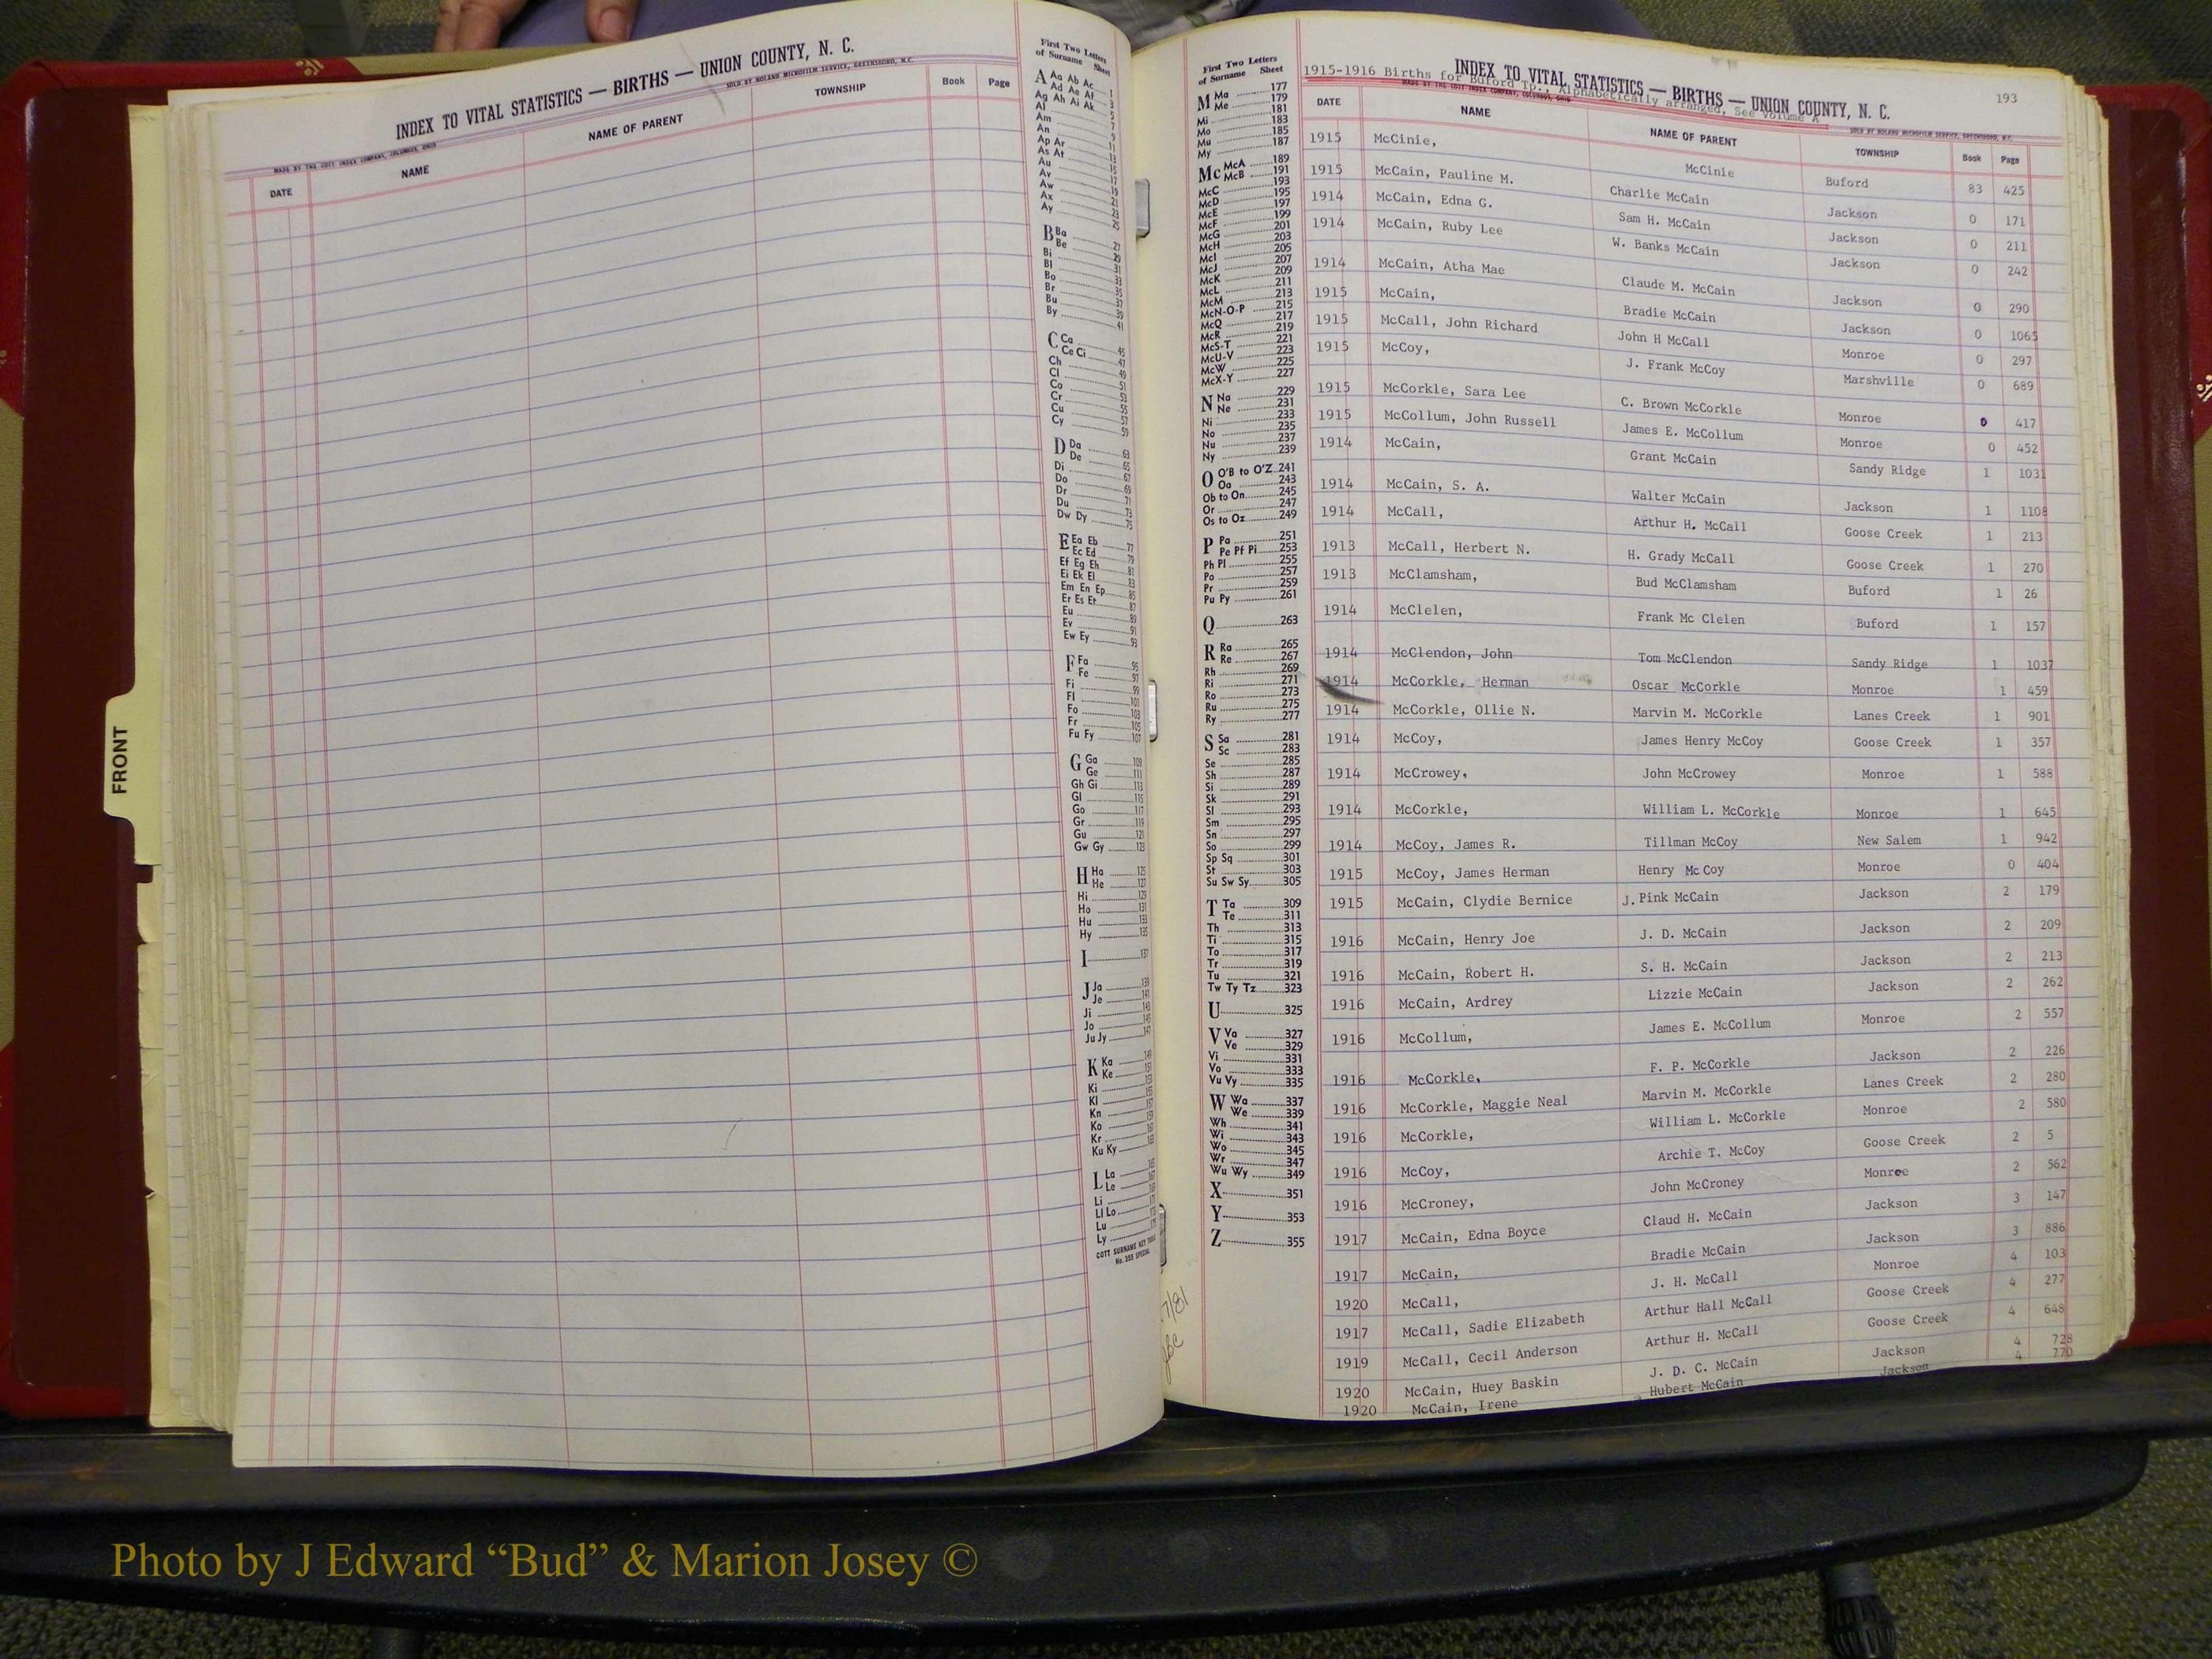 INDEX TO VITAL STATISTICS — BIRTHS — UNION COUNTY, N. C.
SOLD BY ROLAND MICROFILM SERVICE, GREENSBORO, N.C.
MADE BY THE COTT INDEX COMPANY, COLUMBUS, OHIO
DATE NAME NAME OF PARENT TOWNSHIP Book Page
First Two Letters
of Surname Sheet
A Aa Ab Ac 1
Ad Ae Af 3
Ag Ah Ai Ak 5
Al 7
Am 9
An 11
Ap Ar 13
As At 15
Au 17
Av 19
Aw 21
Ax 23
Ay 25
B Ba 27
Be 29
Bi 31
Bl 33
Bo 35
Br 37
Bu 39
By 41
C Ca 45
Ce Ci 47
Ch 49
Cl 51
Co 53
Cr 55
Cu 57
Cy 59
D Da 63
De 65
Di 67
Do 69
Dr 71
Du 73
Dw Dy 75
E Ea Eb 77
Ec Ed 79
Ef Eg Eh 81
Ei Ek El 83
Em En Ep 85
Er Es Et 87
Eu 89
Ev 91
Ew Ey 93
F Fa 95
Fe 97
Fi 99
Fl 101
Fo 103
Fr 105
Fu Fy 107
G Ga 109
Ge 111
Gh Gi 113
Gl 115
Go 117
Gr 119
Gu 121
Gw Gy 123
H Ha 125
He 127
Hi 129
Ho 131
Hu 133
Hy 135
I 137
J Ja 139
Je 141
Ji 143
Jo 145
Ju Jy 147
K Ka 149
Ke 151
Ki
Kl
Kn
Ko
Kr
Ku Ky
L La
Le
Li
Ll Lo
Lu
Ly
COTT SURNAME KEY TABLE
No. 355 SPECIAL
FRONT
First Two Letters
of Surname Sheet
M Ma 177
Me 179
Mi 181
Mo 183
Mu 185
My 187
Mc McA 189
McB 191
McC 193
McD 195
McE 197
McF 199
McG 201
McH 203
McI 205
McJ 207
McK 209
McL 211
McM 213
McN-O-P 215
McQ 217
McR 219
McS-T 221
McU-V 223
McW 225
McX-Y 227
N Na 229
Ne 231
Ni 233
No 235
Nu 237
Ny 239
O O'B to O'Z 241
Oa 243
Ob to On 245
Or 247
Os to Oz 249
P Pa 251
Pe Pf Pi 253
Ph Pl 255
Po 257
Pr 259
Pu Py 261
Q 263
R Ra 265
Re 267
Rh 269
Ri 271
Ro 273
Ru 275
Ry 277
S Sa 281
Sc 283
Se 285
Sh 287
Si 289
Sk 291
Sl 293
Sm 295
Sn 297
So 299
Sp Sq 301
St 303
Su Sw Sy 305
T Ta 309
Te 311
Th 313
Ti 315
To 317
Tr 319
Tu 321
Tw Ty Tz 323
U 325
V Va 327
Ve 329
Vi 331
Vo 333
Vu Vy 335
W Wa 337
We 339
Wh 341
Wi 343
Wo 345
Wr 347
Wu Wy 349
X 351
Y 353
Z 355
7/81
193
INDEX TO VITAL STATISTICS — BIRTHS — UNION COUNTY, N. C.
1915-1916 Births for Buford Tp., Alphabetically arranged, see Volume A
MADE BY THE COTT INDEX COMPANY, COLUMBUS, OHIO
SOLD BY ROLAND MICROFILM SERVICE, GREENSBORO, N.C.
DATE NAME NAME OF PARENT TOWNSHIP Book Page
1915 McCinie, McCinie Buford 83 425
1915 McCain, Pauline M. Charlie McCain Jackson 0 171
1914 McCain, Edna G. Sam H. McCain Jackson 0 211
1914 McCain, Ruby Lee W. Banks McCain Jackson 0 242
1914 McCain, Atha Mae Claude M. McCain Jackson 0 290
1915 McCain, Bradie McCain Jackson 0 1065
1915 McCall, John Richard John H McCall Monroe 0 297
1915 McCoy, J. Frank McCoy Marshville 0 689
1915 McCorkle, Sara Lee C. Brown McCorkle Monroe 0 417
1915 McCollum, John Russell James E. McCollum Monroe 0 452
1914 McCain, Grant McCain Sandy Ridge 1 1031
1914 McCain, S. A. Walter McCain Jackson 1 1108
1914 McCall, Arthur H. McCall Goose Creek 1 213
1913 McCall, Herbert N. H. Grady McCall Goose Creek 1 270
1913 McClamsham, Bud McClamsham Buford 1 26
1914 McClelen, Frank Mc Clelen Buford 1 157
1914 McClendon, John Tom McClendon Sandy Ridge 1 1037
1914 McCorkle, Herman Oscar McCorkle Monroe 1 459
1914 McCorkle, Ollie N. Marvin M. McCorkle Lanes Creek 1 901
1914 McCoy, James Henry McCoy Goose Creek 1 357
1914 McCrowey, John McCrowey Monroe 1 588
1914 McCorkle, William L. McCorkle Monroe 1 645
1914 McCoy, James R. Tillman McCoy New Salem 1 942
1915 McCoy, James Herman Henry Mc Coy Monroe 0 404
1915 McCain, Clydie Bernice J. Pink McCain Jackson 2 179
1916 McCain, Henry Joe J. D. McCain Jackson 2 209
1916 McCain, Robert H. S. H. McCain Jackson 2 213
1916 McCain, Ardrey Lizzie McCain Jackson 2 262
1916 McCollum, James E. McCollum Monroe 2 557
1916 McCorkle, F. P. McCorkle Jackson 2 226
1916 McCorkle, Maggie Neal Marvin M. McCorkle Lanes Creek 2 280
1916 McCorkle, William L. McCorkle Monroe 2 580
1916 McCoy, Archie T. McCoy Goose Creek 2 5
1916 McCroney, John McCroney Monroe 2 562
1917 McCain, Edna Boyce Claud H. McCain Jackson 3 147
1917 McCain, Bradie McCain Jackson 3 886
1920 McCall, J. H. McCall Monroe 4 103
1917 McCall, Sadie Elizabeth Arthur Hall McCall Goose Creek 4 277
1919 McCall, Cecil Anderson Arthur H. McCall Goose Creek 4 648
1920 McCain, Huey Baskin J. D. C. McCain Jackson 4 728
1920 McCain, Irene Hubert McCain Jackson 4 770
Photo by J Edward “Bud” & Marion Josey ©